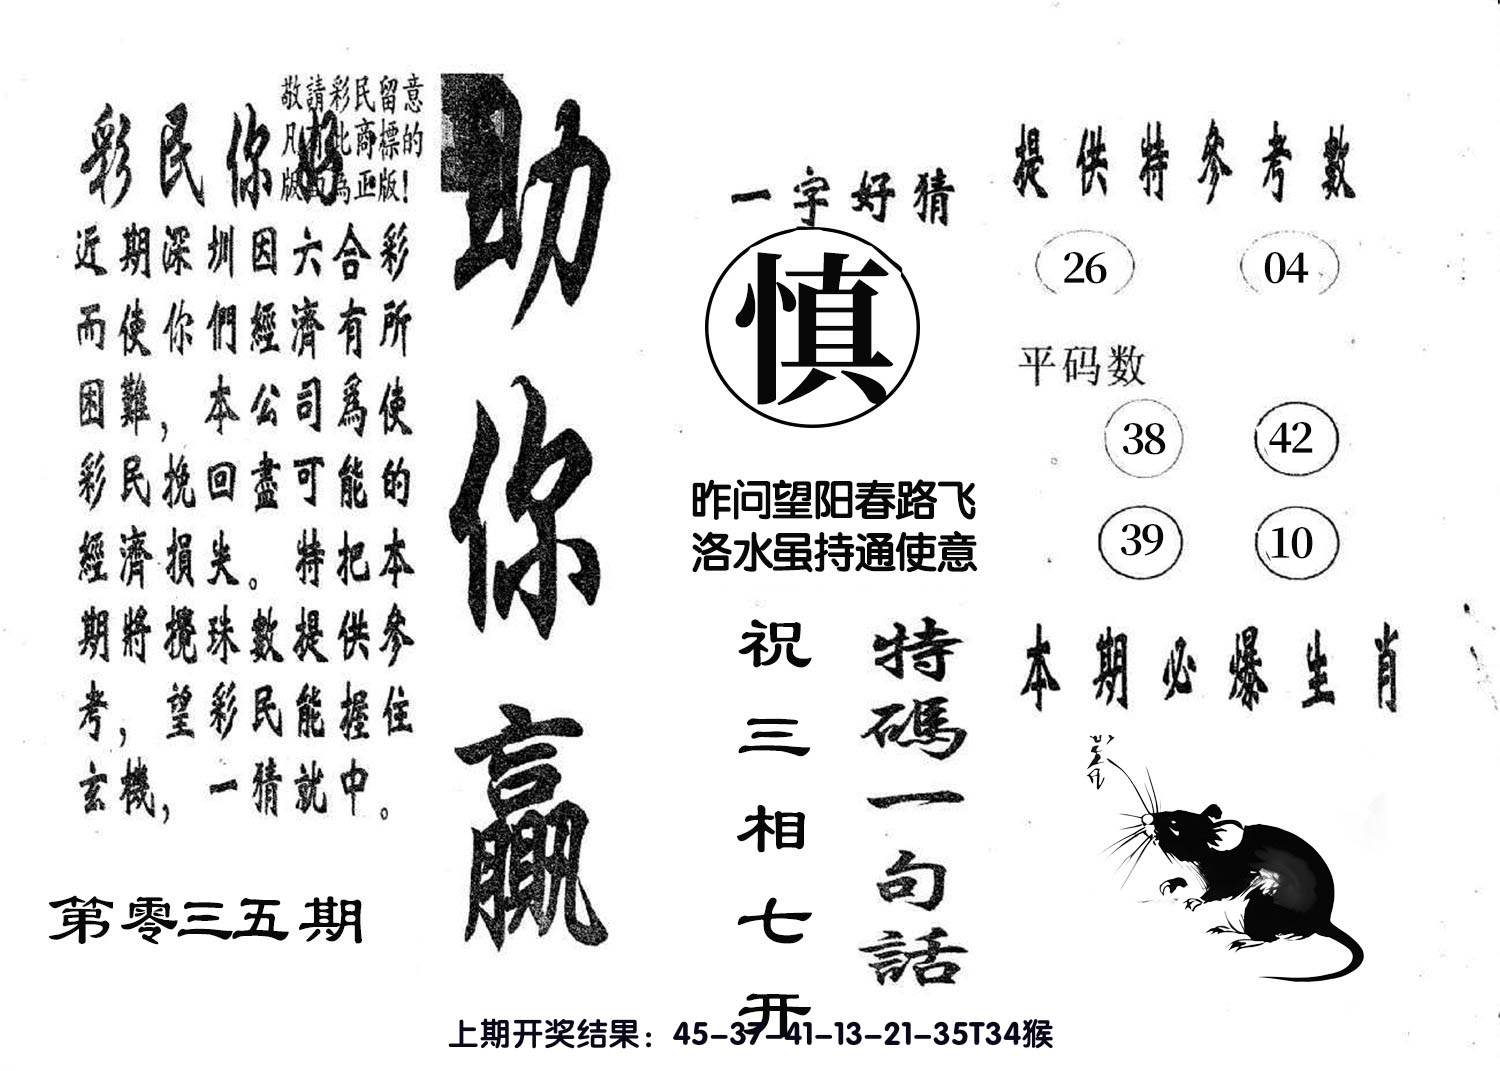 敬請彩民留意
凡有此商標的
版面為正版!
彩民你好
近期深圳因六合彩
而使你們經濟有所
困難，本公司爲使
彩民挽回盡可能的
經濟損失。特把本
期將攪珠數提供參
考，望彩民能握住
玄機，一猜就中。
第零三五期
助你贏
一字好猜
慎
昨问望阳春路飞
洛水虽持通使意
特碼一句話
祝三相七开
提供特參考數
26 04
平码数
38 42
39 10
本期必爆生肖
上期开奖结果：45-37-41-13-21-35T34猴